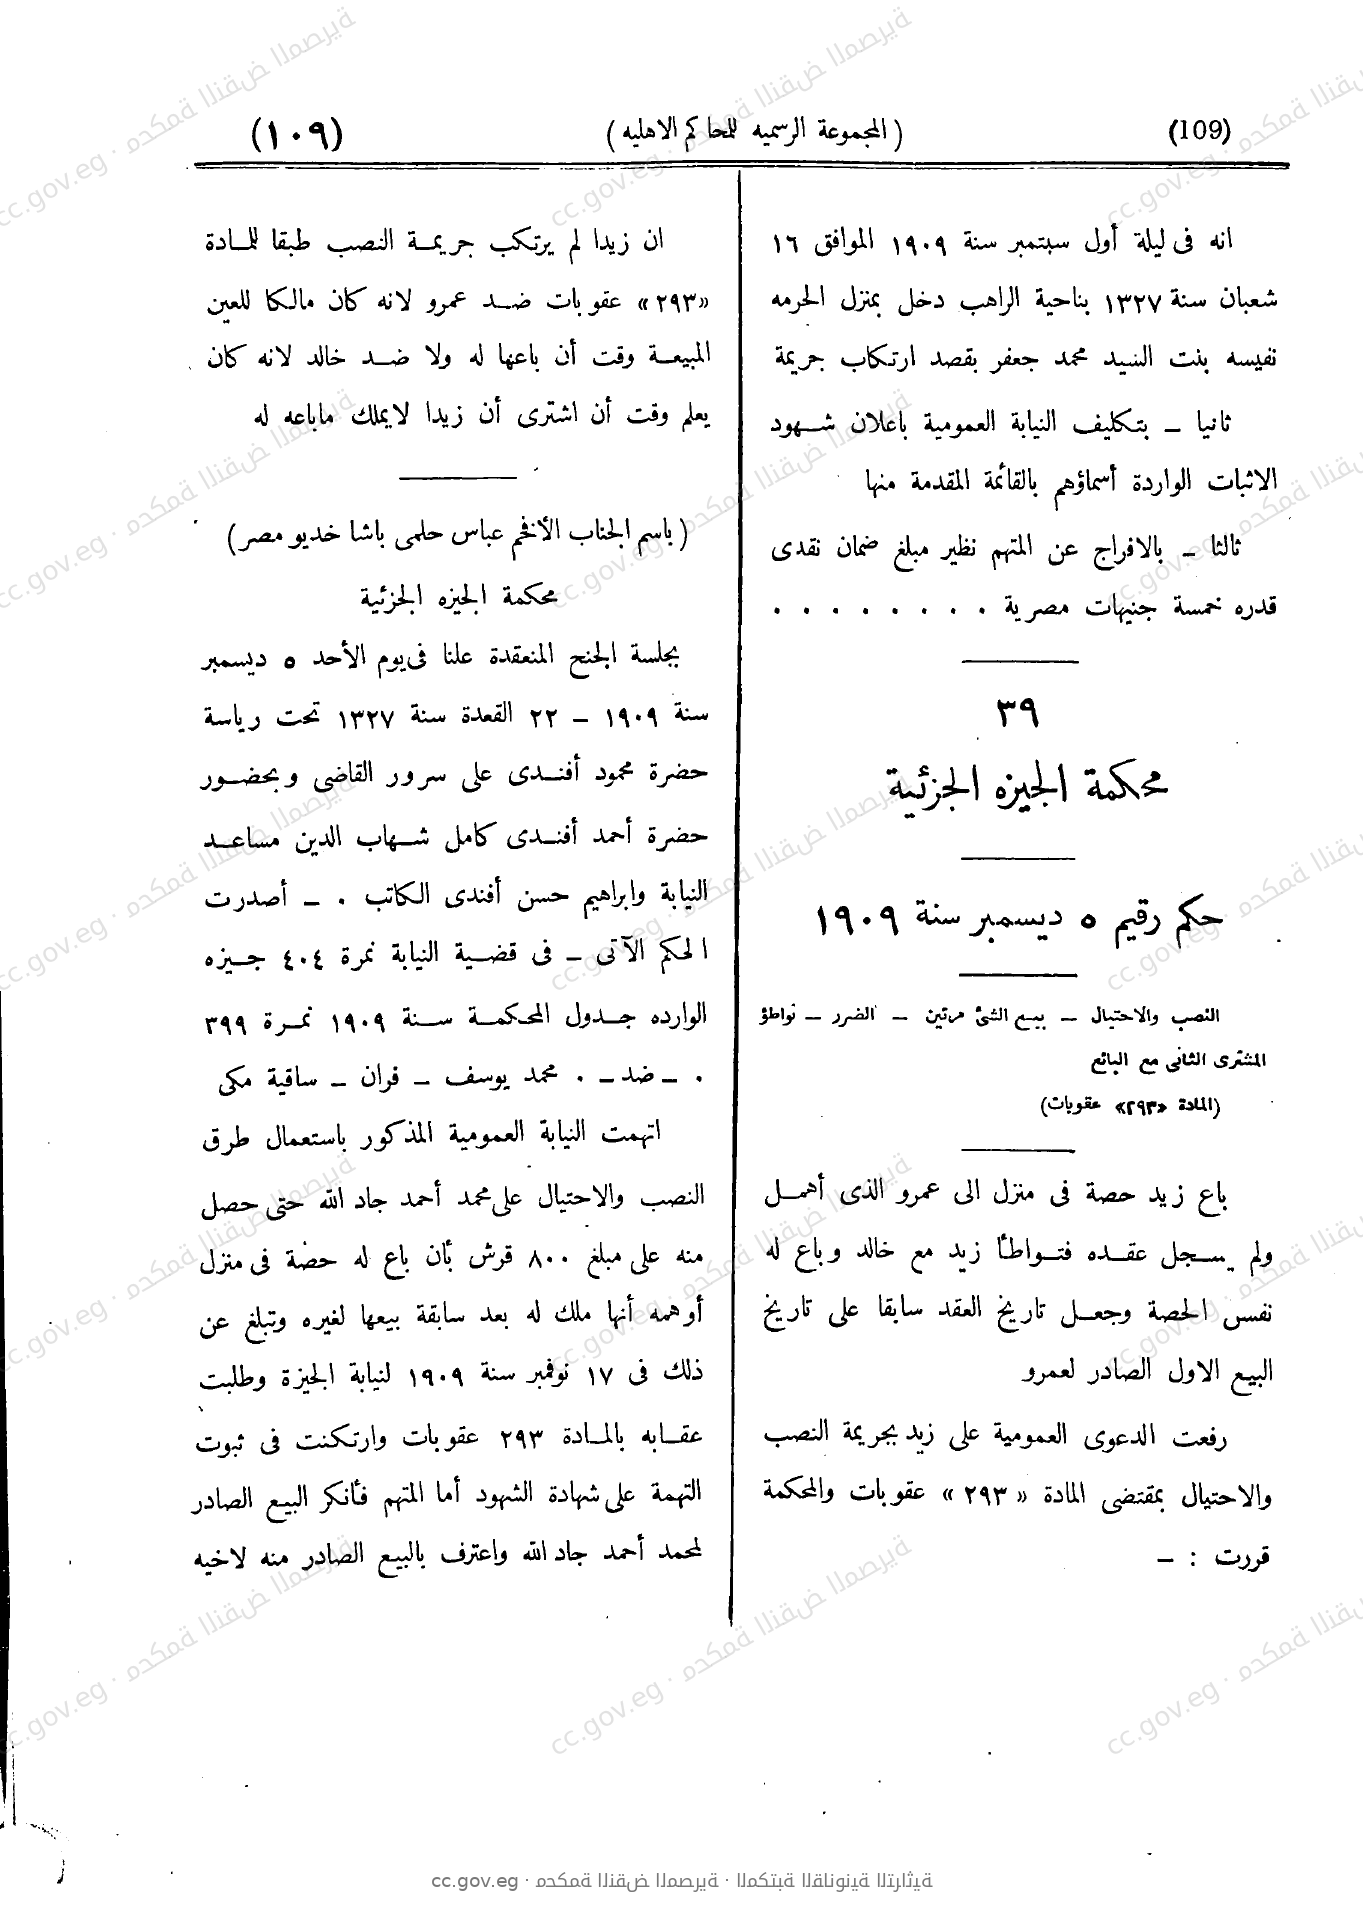 (109)
( المجموعة الرسميه للمحاكم الاهليه )
(١٠٩)
انه فى ليلة أول سبتمبر سنة ١٩٠٩ الموافق ١٦
شعبان سنة ١٣٢٧ بناحية الراهب دخل بمنزل الحرمه
نفيسه بنت السيد محمد جعفر بقصد ارتكاب جريمة
ثانيا – بتكليف النيابة العمومية باعلان شهود
الاثبات الواردة أسماؤهم بالقائمة المقدمة منها
ثالثا – بالافراج عن المتهم نظير مبلغ ضمان نقدى
قدره خمسة جنيهات مصرية . . . . . . . .
٣٩
محكمة الجيزه الجزئية
حكم رقيم ٥ ديسمبر سنة ١٩٠٩
النصب والاحتيال – بيع الشئ مرتين – الضرر – تواطؤ
المشترى الثانى مع البائع
(المادة «٢٩٣» عقوبات)
باع زيد حصة فى منزل الى عمرو الذى أهمل
ولم يسجل عقده فتواطأ زيد مع خالد وباع له
نفس الحصة وجعل تاريخ العقد سابقا على تاريخ
البيع الاول الصادر لعمرو
رفعت الدعوى العمومية على زيد بجريمة النصب
والاحتيال بمقتضى المادة «٢٩٣» عقوبات والمحكمة
قررت : –
ان زيدا لم يرتكب جريمة النصب طبقا للمادة
«٢٩٣» عقوبات ضد عمرو لانه كان مالكا للعين
المبيعة وقت أن باعها له ولا ضد خالد لانه كان
يعلم وقت أن اشترى أن زيدا لايملك ماباعه له
( باسم الجناب الأفخم عباس حلمى باشا خديو مصر)
محكمة الجيزه الجزئية
بجلسة الجنح المنعقدة علنا فى يوم الأحد ٥ ديسمبر
سنة ١٩٠٩ – ٢٢ القعدة سنة ١٣٢٧ تحت رياسة
حضرة محمود أفندى على سرور القاضى وبحضور
حضرة أحمد أفندى كامل شهاب الدين مساعد
النيابة وابراهيم حسن أفندى الكاتب . – أصدرت
الحكم الآتى – فى قضية النيابة نمرة ٤٠٤ جيزه
الوارده جدول المحكمة سنة ١٩٠٩ نمرة ٣٩٩
. – ضد – . محمد يوسف – فران – ساقية مكى
اتهمت النيابة العمومية المذكور باستعمال طرق
النصب والاحتيال على محمد أحمد جاد الله حتى حصل
منه على مبلغ ٨٠٠ قرش بأن باع له حصة فى منزل
أوهمه أنها ملك له بعد سابقة بيعها لغيره وتبلغ عن
ذلك فى ١٧ نوفمبر سنة ١٩٠٩ لنيابة الجيزة وطلبت
عقابه بالمادة ٢٩٣ عقوبات وارتكنت فى ثبوت
التهمة على شهادة الشهود أما المتهم فأنكر البيع الصادر
لمحمد أحمد جاد الله واعترف بالبيع الصادر منه لاخيه
cc.gov.eg · محكمة النقض المصرية · المكتبة القانونية التراثية